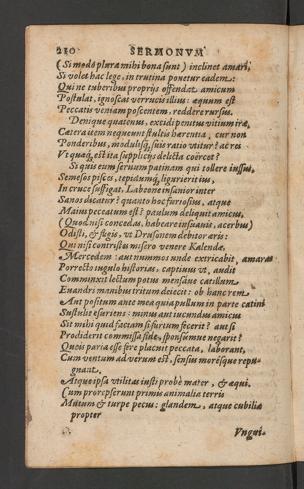 230 SERMONVM
(Si modò plura mihi bona sunt) inclinet amari,
Si volet hac lege, in trutina ponetur eadem:
Qui ne tuberibus proprijs offendat amicum
Postulat, ignoscat verrucis illius: æquum est
Peccatis veniam poscentem, reddere rursus.
Denique quatenus, excidi penitus vitium iræ,
Cætera item nequeunt stultis hærentia, cur non
Ponderibus, modulisq́; suis ratio vtitur? ac res
Vt quæq́; est ita supplicijs delicta coërcet?
Si quis eum seruum patinam qui tollere iussus,
Semesos pisces, tepidumq́; ligurierit ius,
In cruce suffigat, Labeone insanior inter
Sanos dicatur: quanto hoc furiosius, atque
Maius peccatum est? paulum deliquit amicus,
(Quod nisi concedas, habeare insuauis, acerbus)
Odisti, & fugis, vt Drusonem debitor æris:
Qui nisi cum tristes misero venere Kalendæ,
Mercedem aut nummos vnde extricabit, amaras
Porrecto iugulo historias, captiuus vt, audit
Comminxit lectum potus mensáue catillum
Euandri manibus tritum deiecit: ob hanc rem
Aut positum ante mea quia pullum in parte catini
Sustulit esuriens: minus hoc iucundus amicus
Sit mihi quid faciam si furtum fecerit? aut si
Prodiderit commissa fide, sponsúmue negarit?
Queis paria esse fere placuit peccata, laborant,
Cum ventum ad verum est, sensus morésque repu-
gnant.
Atque ipsa vtilitas iusti probè mater, & æqui.
Cum prorepserunt primis animalia terris
Mutum & turpe pecus: glandem, atque cubilia
propter
Vngui-